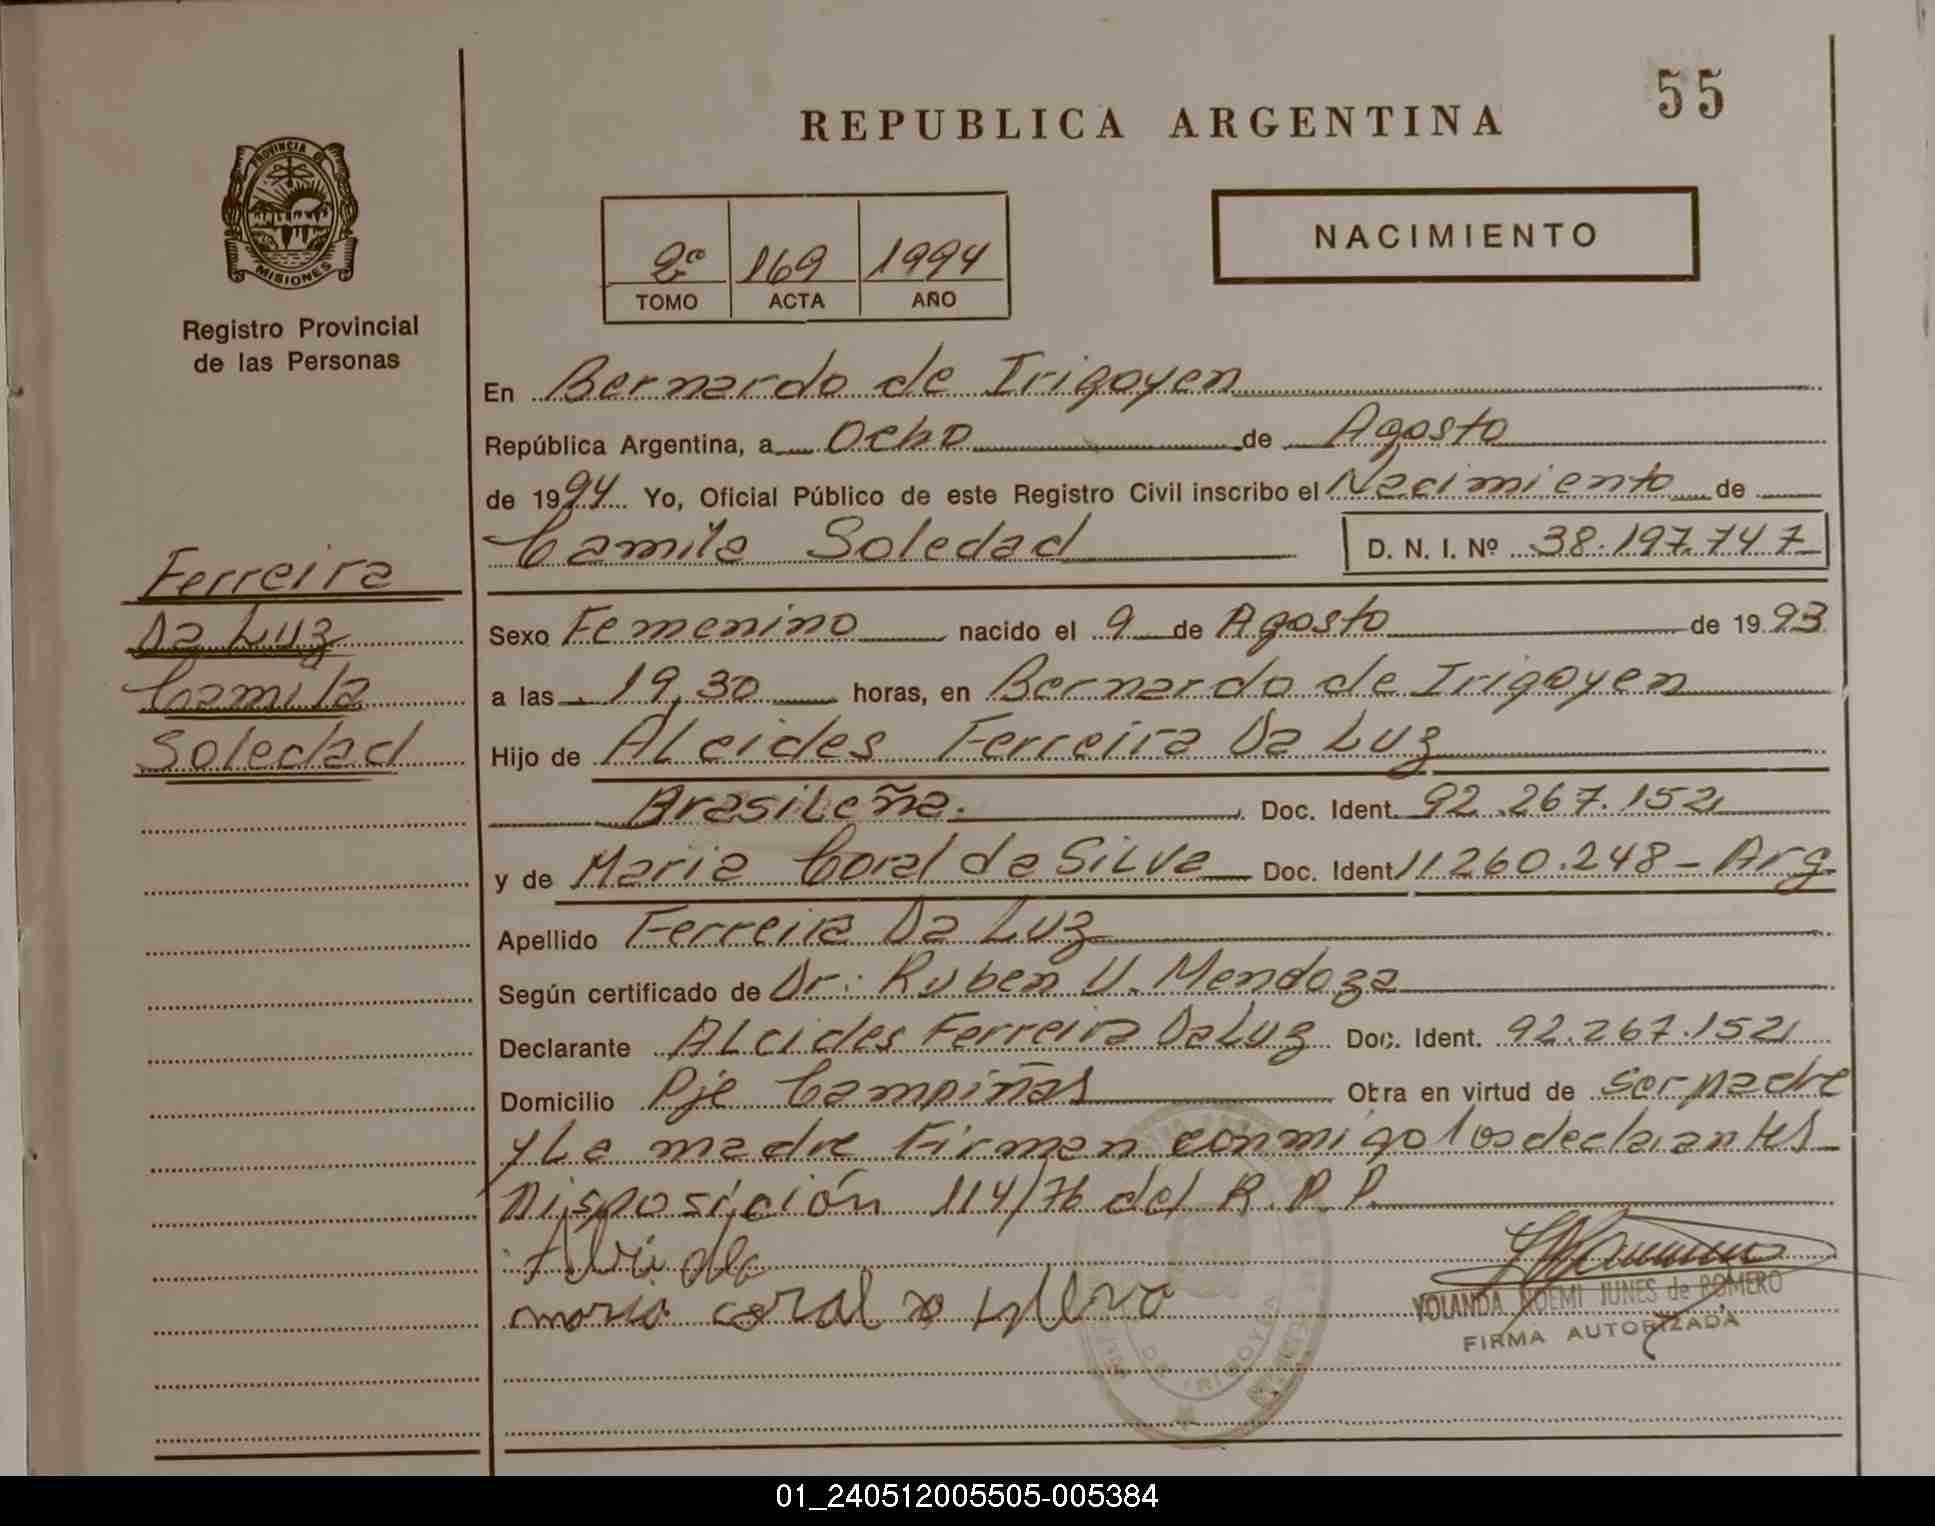 55
REPUBLICA ARGENTINA
PROVINCIA DE
MISIONES
Registro Provincial
de las Personas
2º 169 1994
TOMO ACTA AÑO
NACIMIENTO
En Bernardo de Irigoyen
República Argentina, a Ocho de Agosto
de 1994 Yo, Oficial Público de este Registro Civil inscribo el Nacimiento de
Camila Soledad D. N. I. Nº 38.197.747
Ferreira
Da Luz
Camila
Soledad
Sexo Femenino nacido el 9 de Agosto de 1993
a las 19,30 horas, en Bernardo de Irigoyen
Hijo de Alcides Ferreira Da Luz
Brasileña. Doc. Ident. 92.267.152
y de Maria Coral da Silva Doc. Ident 11260.248 - Arg
Apellido Ferreira Da Luz
Según certificado de Dr: Ruben U. Mendoza
Declarante Alcides Ferreira Da Luz Doc. Ident. 92.267.152
Domicilio Pje Campiñas Obra en virtud de ser padre
y La madre Firman conmigo los declarantes
Disposición 114/76 del R.P.P.
maria coral
YOLANDA NOEMI JUNES de ROMERO
FIRMA AUTORIZADA
01_240512005505-005384